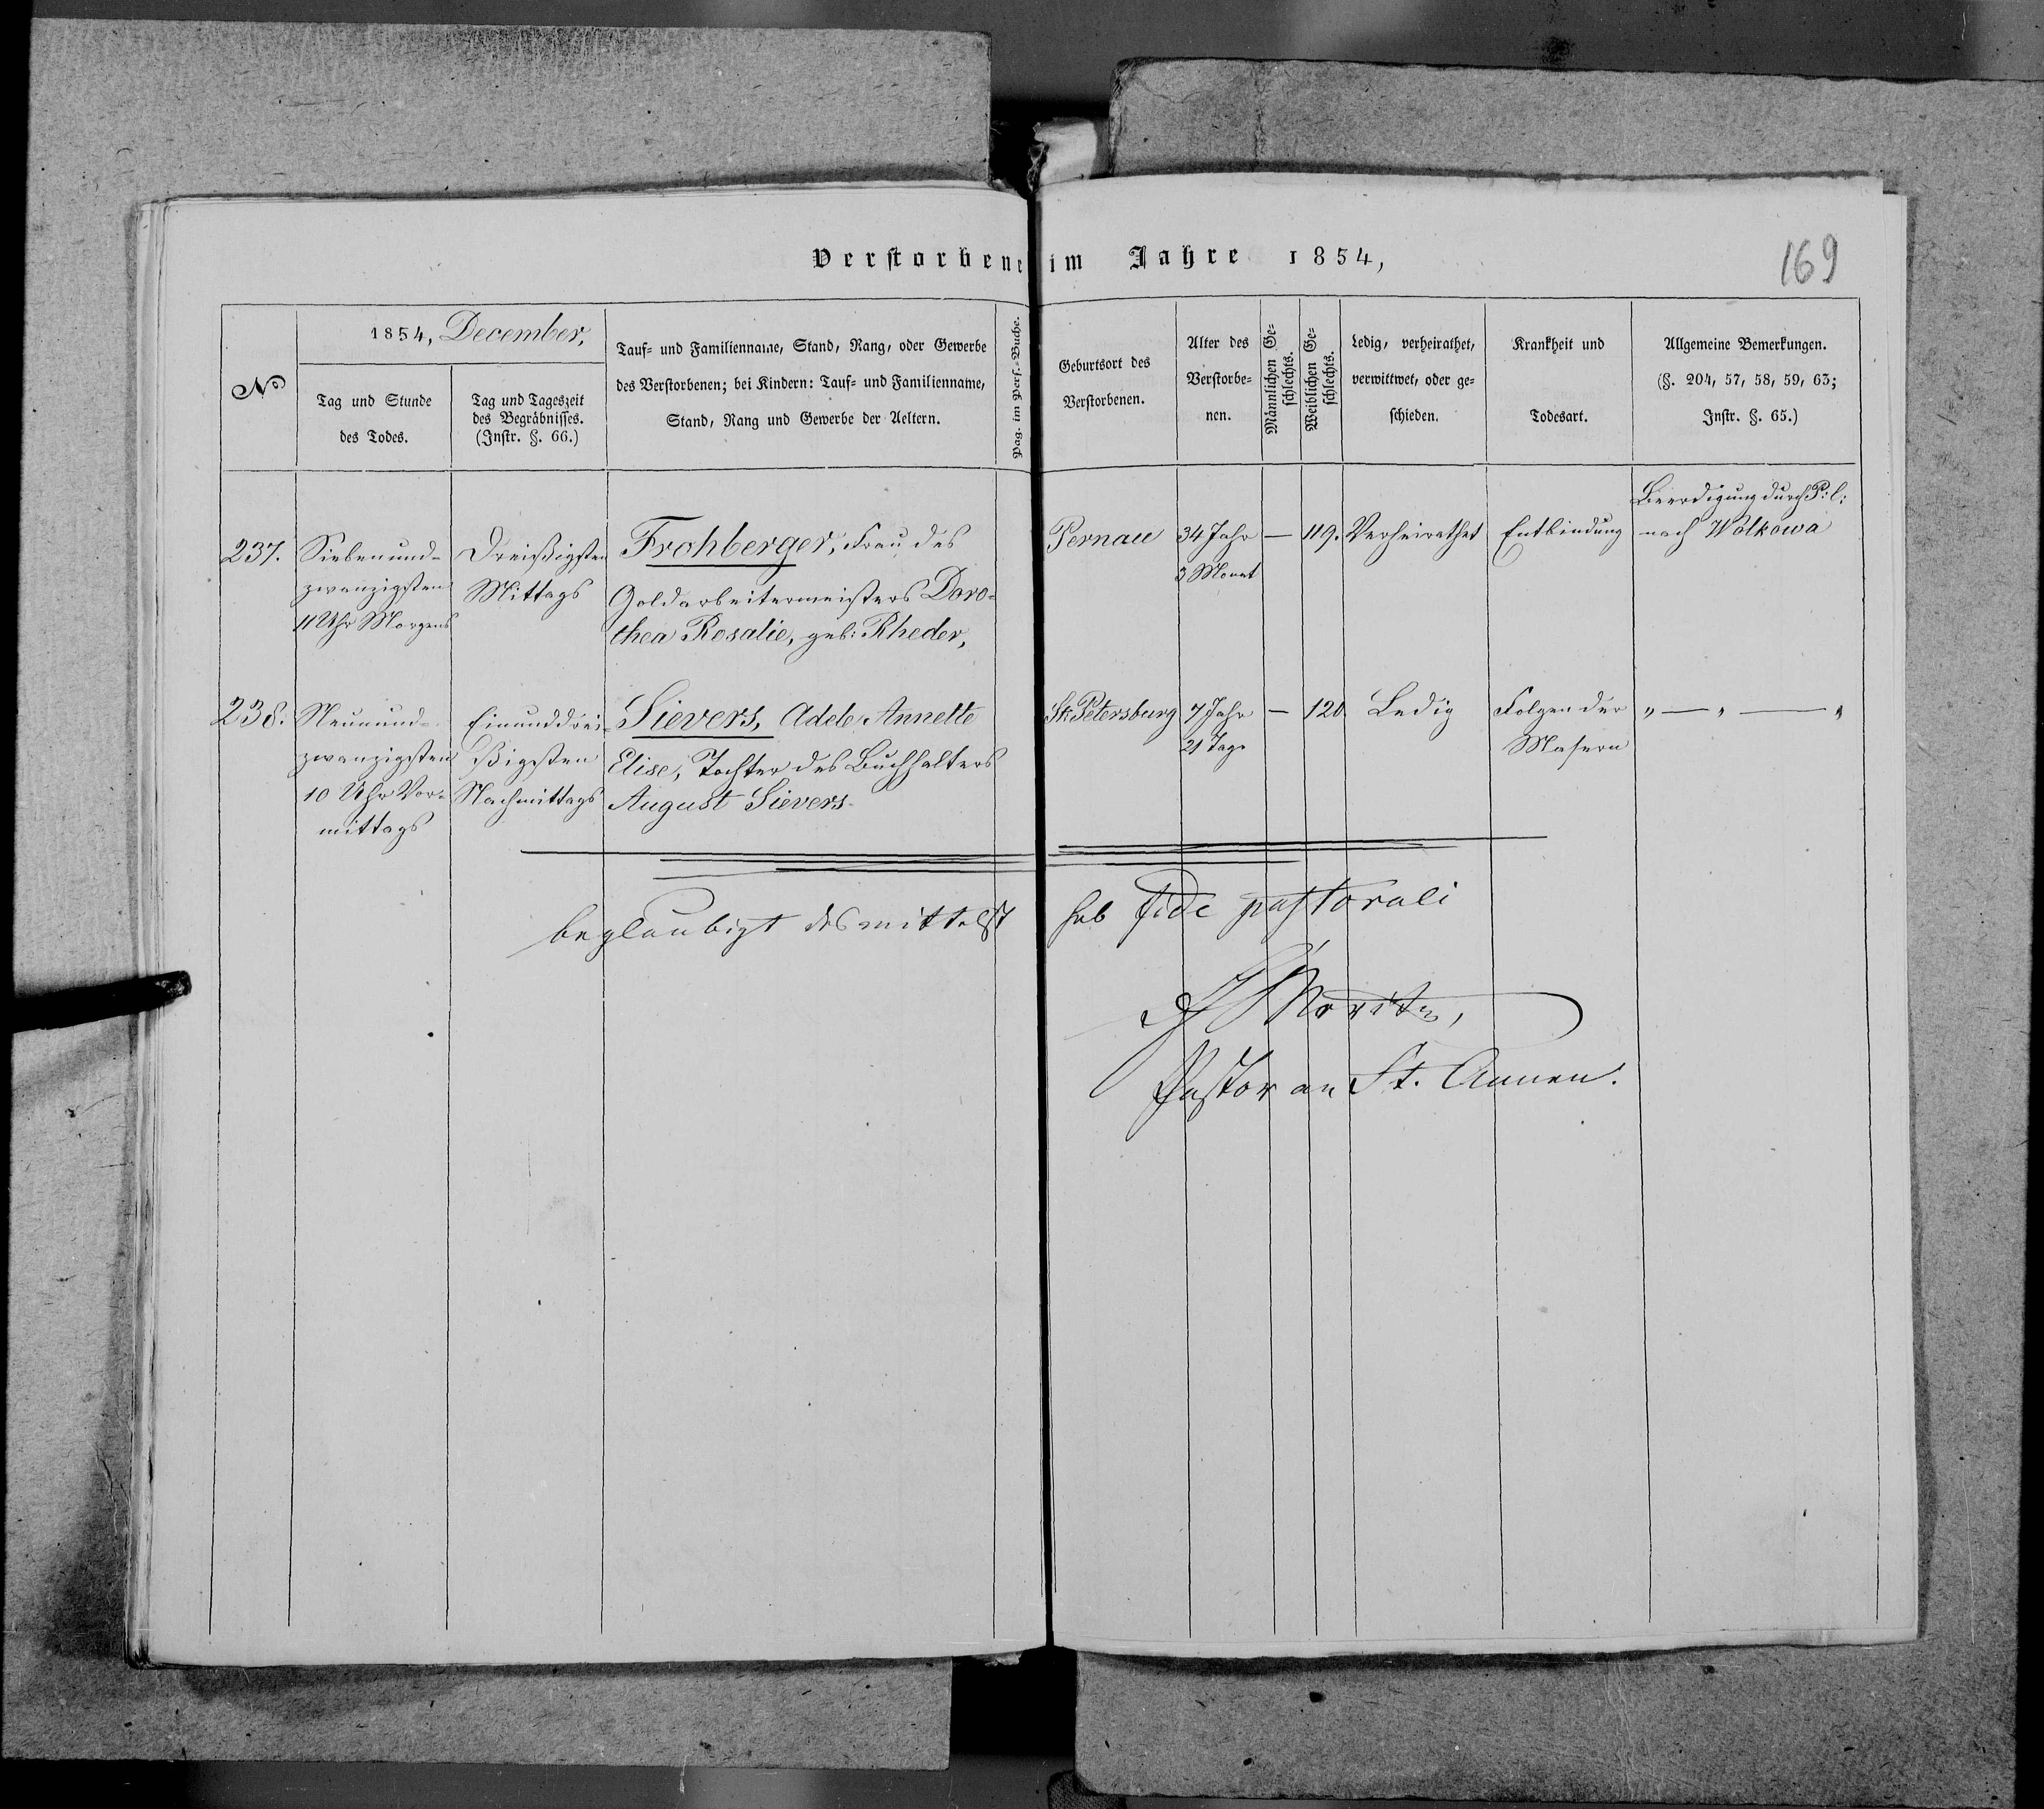 Verstorbene im Jahre 1854,
169
No
1854, December,
Tag und Stunde
des Todes.
Tag und Tageszeit
des Begräbnisses.
(Instr. §. 66.)
Tauf= und Familienname, Stand, Rang, oder Gewerbe
des Verstorbenen; bei Kindern: Tauf= und Familienname,
Stand, Rang und Gewerbe der Aeltern.
Pag. im Pers.=Buche.
Geburtsort des
Verstorbenen.
Alter des
Verstorbe=
nen.
Männlichen Ge=
schlechts.
Weiblichen Ge=
schlechts.
Ledig, verheirathet,
verwittwet, oder ge=
schieden.
Krankheit und
Todesart.
Allgemeine Bemerkungen.
(§. 204, 57, 58, 59, 63;
Instr. §. 65.)
237.
Siebenund=
zwanzigsten
11 Uhr Morgens
Dreißigsten
Mittags
Frohberger, Frau des
Goldarbeitermeisters Doro=
thea Rosalie, geb: Rheder,
Pernau
34 Jahr
3 Monat
—
119.
Verheirathet
Entbindung
Beerdigung durch P: l:
nach Wolkowa
238.
Neunund=
zwanzigsten
10 Uhr Vor=
mittags
Einunddrei=
ßigsten
Nachmittags
Sievers, Adele Annette
Elise, Tochter des Buchhalters
August Sievers
St. Petersburg
7 Jahr
21 Tage
—
120
Ledig
Folgen der
Masern
„ — „ — „
beglaubigt desmittelst sub fide pastorali
Moritz,
Pastor an St. Annen.